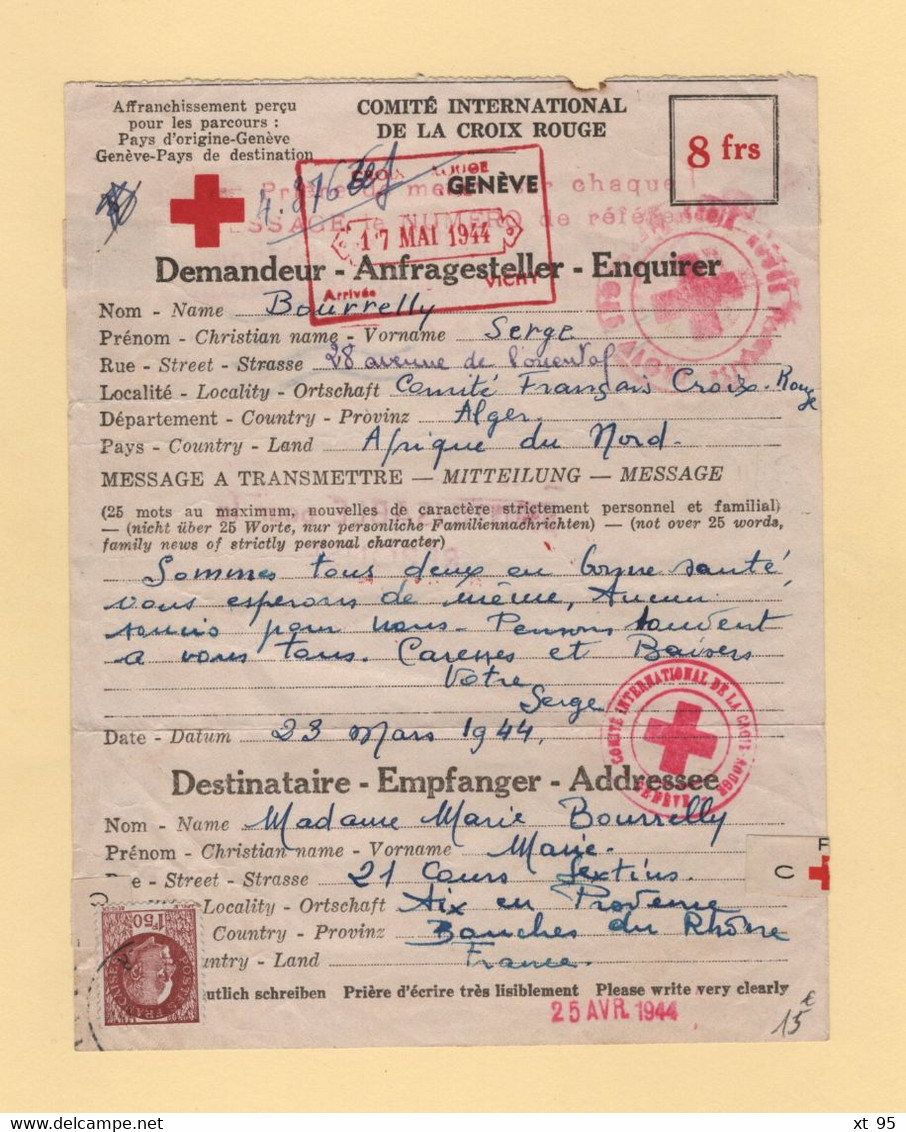 Affranchissement perçu
pour les parcours :
Pays d'origine-Genève
Genève-Pays de destination
COMITÉ INTERNATIONAL
DE LA CROIX ROUGE
GENÈVE
8 frs
CROIX ROUGE
17 MAI 1944
Arrivée VICHY
chaque
MESSAGE le NUMERO de référence
Demandeur - Anfragesteller - Enquirer
Nom - Name Bourrelly
Prénom - Christian name - Vorname Serge
Rue - Street - Strasse 28 avenue de
Localité - Locality - Ortschaft Comité Français Croix-Rouge
Département - Country - Provinz Alger.
Pays - Country - Land Afrique du Nord.
MESSAGE A TRANSMETTRE — MITTEILUNG — MESSAGE
(25 mots au maximum, nouvelles de caractère strictement personnel et familial)
— (nicht über 25 Worte, nur personliche Familiennachrichten) — (not over 25 words,
family news of strictly personal character)
Sommes tous deux en bonne santé
vous esperons de même, Aucun
soucis pour nous. Pensons souvent
a vous tous. Caresses et Baisers
Votre
Serge
COMITÉ INTERNATIONAL DE LA CROIX-ROUGE
GENÈVE
Date - Datum 23 Mars 1944.
Destinataire - Empfanger - Addressee
Nom - Name Madame Marie Bourrelly
Prénom - Christian name - Vorname Marie.
e - Street - Strasse 21 Cours Sextius.
Locality - Ortschaft Aix en Provence
Country - Provinz Bouches du Rhône
untry - Land France.
F
C
1F50
POSTES FRANÇAISES
utlich schreiben Prière d'écrire très lisiblement Please write very clearly
25 AVR. 1944
15 €
xt 95